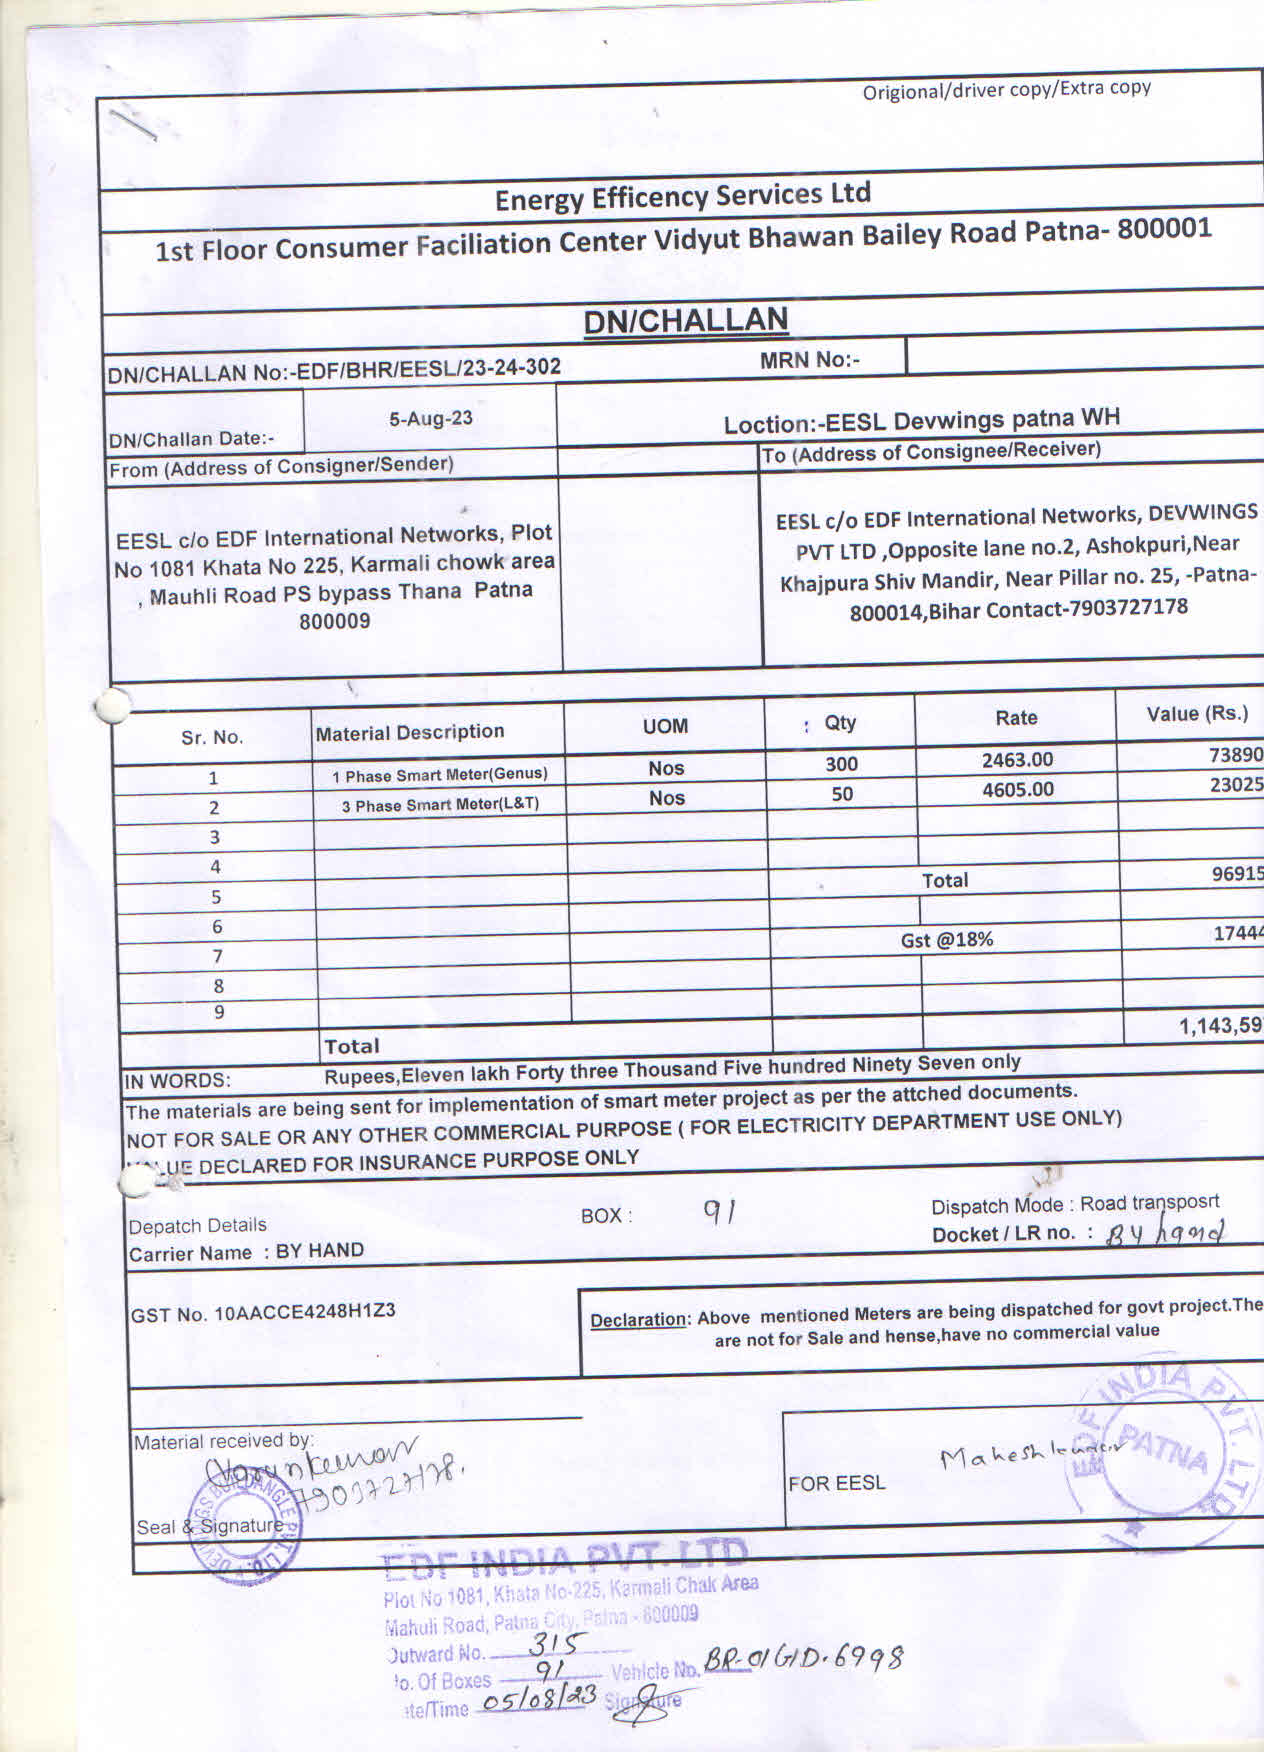 Origional/driver copy/Extra copy
Energy Efficency Services Ltd
1st Floor Consumer Faciliation Center Vidyut Bhawan Bailey Road Patna- 800001
DN/CHALLAN
DN/CHALLAN No:-EDF/BHR/EESL/23-24-302 MRN No:-
DN/Challan Date:- 5-Aug-23 Loction:-EESL Devwings patna WH
From (Address of Consigner/Sender) To (Address of Consignee/Receiver)
EESL c/o EDF International Networks, Plot
No 1081 Khata No 225, Karmali chowk area
, Mauhli Road PS bypass Thana Patna
800009
EESL c/o EDF International Networks, DEVWINGS
PVT LTD ,Opposite lane no.2, Ashokpuri,Near
Khajpura Shiv Mandir, Near Pillar no. 25, -Patna-
800014,Bihar Contact-7903727178
Sr. No. Material Description UOM : Qty Rate Value (Rs.)
1 1 Phase Smart Meter(Genus) Nos 300 2463.00 73890
2 3 Phase Smart Meter(L&T) Nos 50 4605.00 23025
3
4
5 Total 96915
6
7 Gst @18% 17444
8
9
Total 1,143,59
IN WORDS: Rupees,Eleven lakh Forty three Thousand Five hundred Ninety Seven only
The materials are being sent for implementation of smart meter project as per the attched documents.
NOT FOR SALE OR ANY OTHER COMMERCIAL PURPOSE ( FOR ELECTRICITY DEPARTMENT USE ONLY)
DECLARED FOR INSURANCE PURPOSE ONLY
Depatch Details BOX : 91 Dispatch Mode : Road transposrt
Carrier Name : BY HAND Docket / LR no. : By hand
GST No. 10AACCE4248H1Z3
Declaration: Above mentioned Meters are being dispatched for govt project.The
are not for Sale and hense,have no commercial value
Material received by:
7903727178.
Seal & Signature
DEVWINGS BUILDANGLE PVT. LTD.
FOR EESL Mahesh kumar
EDF INDIA PVT. LTD
PATNA
EDF INDIA PVT. LTD
Plot No 1081, Khata No-225, Karmali Chak Area
Mahuli Road, Patna City, Patna - 800009
Outward No. 315
o. Of Boxes 91 Vehicle No. BR-01GD.6998
te/Time 05/08/23 Signature